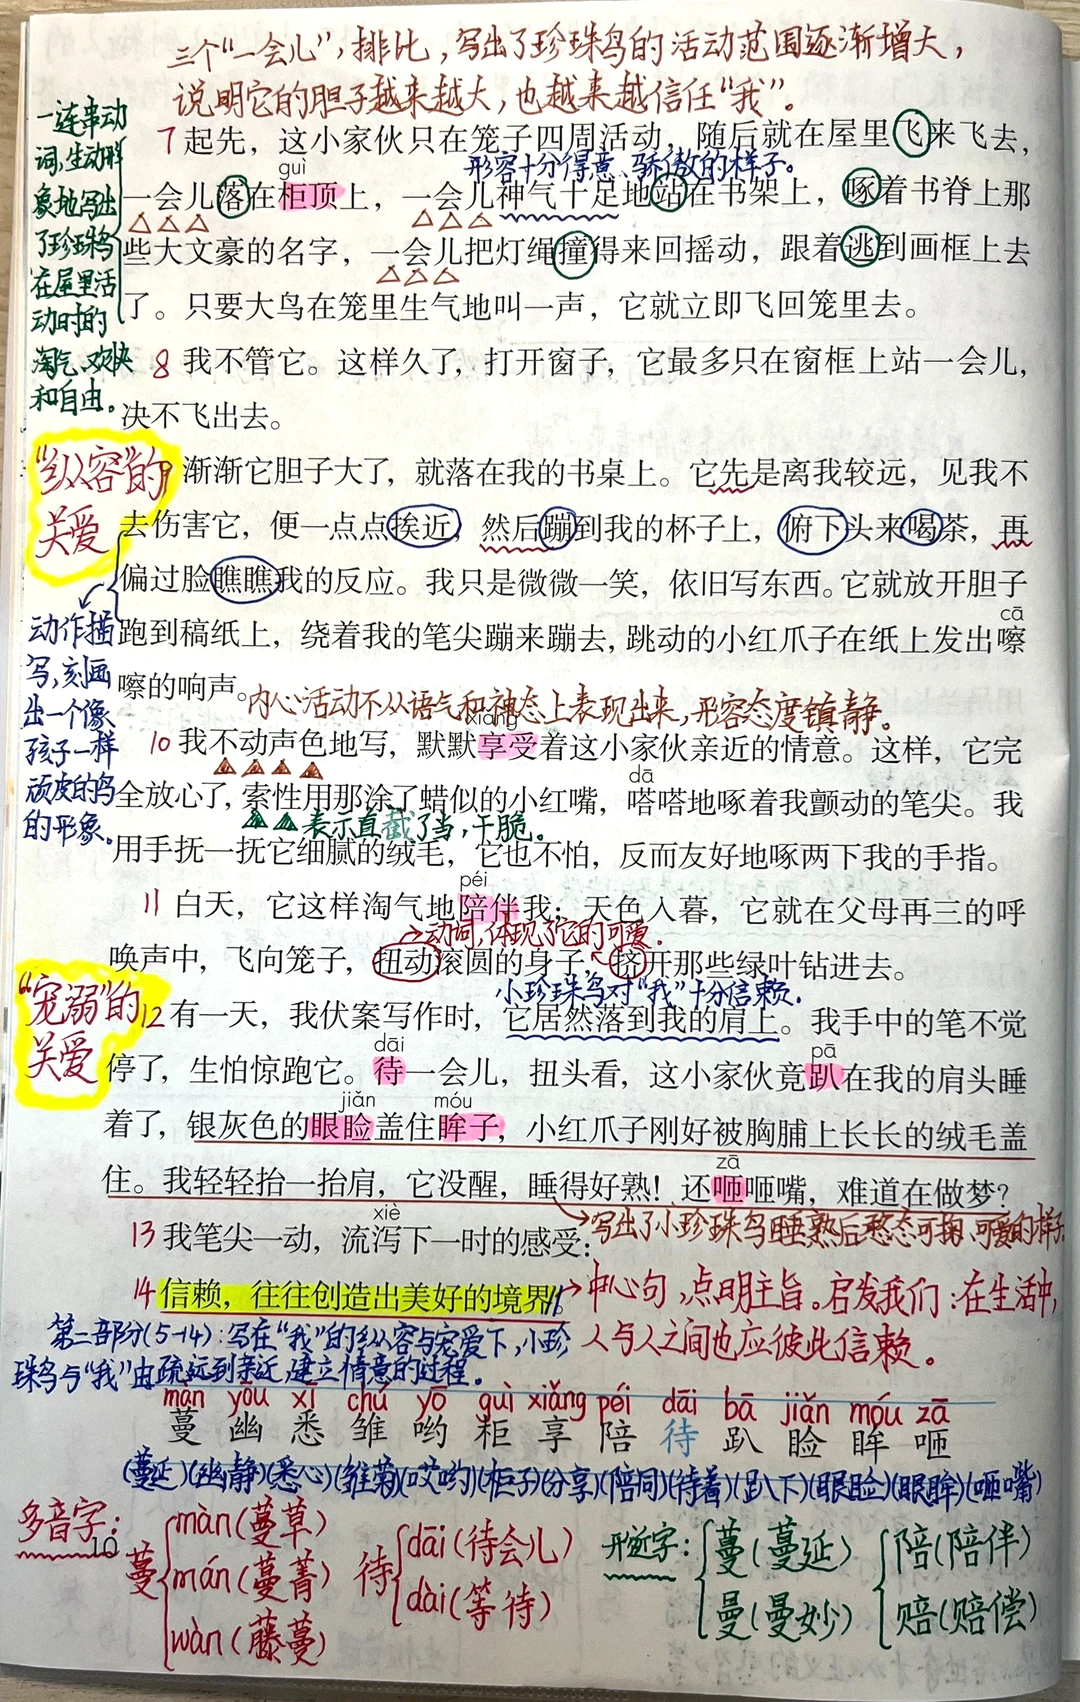 三个“一会儿”，排比，写出了珍珠鸟的活动范围逐渐增大，
说明它的胆子越来越大，也越来越信任“我”。
一连串动
词，生动形
象地写出
了珍珠鸟
在屋里活
动时的
淘气、欢快
和自由。
7 起先，这小家伙只在笼子四周活动，随后就在屋里飞来飞去，
形容十分得意、骄傲的样子。
guì
一会儿落在柜顶上，一会儿神气十足地站在书架上，啄着书脊上那
些大文豪的名字，一会儿把灯绳撞得来回摇动，跟着逃到画框上去
了。只要大鸟在笼里生气地叫一声，它就立即飞回笼里去。
8 我不管它。这样久了，打开窗子，它最多只在窗框上站一会儿，
决不飞出去。
“纵容”的
关爱
9 渐渐它胆子大了，就落在我的书桌上。它先是离我较远，见我不
去伤害它，便一点点挨近，然后蹦到我的杯子上，俯下头来喝茶，再
偏过脸瞧瞧我的反应。我只是微微一笑，依旧写东西。它就放开胆子
cā
跑到稿纸上，绕着我的笔尖蹦来蹦去，跳动的小红爪子在纸上发出嚓
嚓的响声。
动作描
写，刻画
出一个像
孩子一样
顽皮的鸟
的形象。
内心活动不从语气和神态上表现出来，形容态度镇静。
xiǎng
10 我不动声色地写，默默享受着这小家伙亲近的情意。这样，它完
dā
全放心了，索性用那涂了蜡似的小红嘴，嗒嗒地啄着我颤动的笔尖。我
表示直截了当，干脆。
用手抚一抚它细腻的绒毛，它也不怕，反而友好地啄两下我的手指。
péi
11 白天，它这样淘气地陪伴我；天色入暮，它就在父母再三的呼
→动词，体现了它的可爱.
唤声中，飞向笼子，扭动滚圆的身子，挤开那些绿叶钻进去。
小珍珠鸟对“我”十分信赖.
“宠溺”的
关爱
12 有一天，我伏案写作时，它居然落到我的肩上。我手中的笔不觉
dāi pā
停了，生怕惊跑它。待一会儿，扭头看，这小家伙竟趴在我的肩头睡
jiǎn móu
着了，银灰色的眼睑盖住眸子，小红爪子刚好被胸脯上长长的绒毛盖
zā
住。我轻轻抬一抬肩，它没醒，睡得好熟！还咂咂嘴，难道在做梦？
→写出了小珍珠鸟睡熟后憨态可掬、可爱的样子.
xiè
13 我笔尖一动，流泻下一时的感受：
14 信赖，往往创造出美好的境界。
→中心句，点明主旨。启发我们：在生活中，
人与人之间也应彼此信赖。
第二部分(5-14)：写在“我”的纵容与宠爱下，小珍
珠鸟与“我”由疏远到亲近，建立情意的过程。
màn yōu xī chú yō guì xiǎng péi dāi bā jiǎn móu zā
蔓 幽 悉 雏 哟 柜 享 陪 待 趴 睑 眸 咂
(蔓延)(幽静)(悉心)(雏菊)(哎哟)(柜子)(分享)(陪同)(待着)(趴下)(眼睑)(眼眸)(咂嘴)
多音字：
10
蔓 màn(蔓草)
mán(蔓菁)
wàn(藤蔓)
待 dāi(待会儿)
dài(等待)
形近字：
蔓(蔓延)
曼(曼妙)
陪(陪伴)
赔(赔偿)